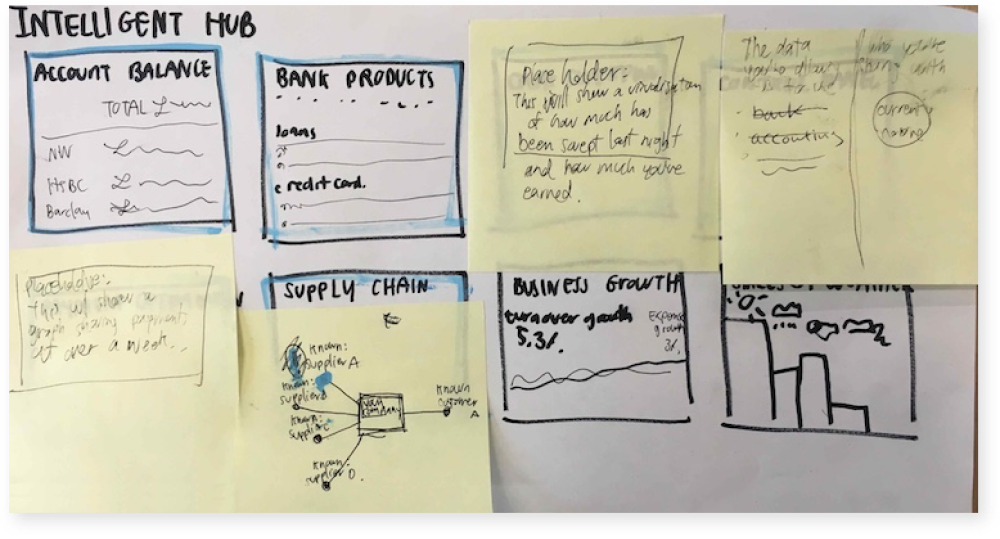 INTELLIGENT HUB
ACCOUNT BALANCE
TOTAL £
NW £
HSBC £
Barclay £
BANK PRODUCTS
loans
credit card.
Placeholder:
This will show a visualisation
of how much has
been swept last night
and how much you've
earned.
The data
is to use
bank
accounting
who you're
sharing with
currently
nothing
Placeholder:
this will show a
graph
over a week...
SUPPLY CHAIN
Known:
Supplier A
Known:
supplier B
Known:
supplier C
Known:
supplier D.
your
company
Known
customer
A
BUSINESS GROWTH
turnover growth
5.3%.
Expense
growth
3%.